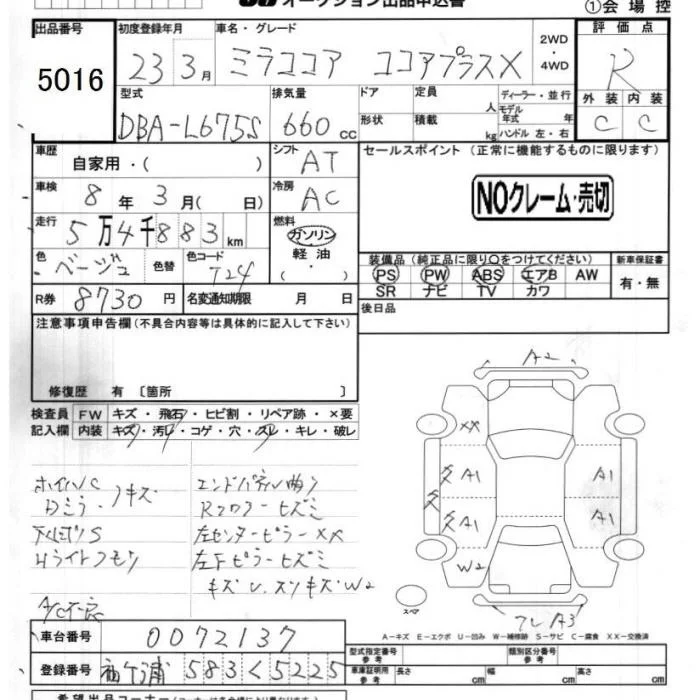 オークション出品申込書
①会場控
出品番号 初度登録年月 車名・グレード 2WD・4WD 評価点
5016 23 3月 ミラココア ココアプラスX R
型式 排気量 ドア 定員 人 ディーラー・並行 外装 内装
DBA-L675S 660cc 形状 積載 kg モデル年式 年 ハンドル 左・右 C C
車歴 自家用・( ) シフト AT セールスポイント (正常に機能するものに限ります)
車検 8年3月( 日) 冷房 AC
NOクレーム・売切
走行 5万4千883km 燃料 ガソリン 軽油 ・( )
色 ベージュ 色替 色コード T24
装備品(純正品に限り○をつけてください) 新車保証書
PS PW ABS エアB AW 有・無
SR ナビ TV カワ
R券 8730円 名変通知期限 月 日 後日品
注意事項申告欄(不具合内容等は具体的に記入して下さい)
修復歴 有〔箇所 〕
検査員 FW キズ・飛石・ヒビ割・リペア跡・×要
記入欄 内装 キズ・汚レ・コゲ・穴・スレ・キレ・破レ
ホイルC
キズ
S
Hライトクモリ
A/C不良
エンドパネル曲り
Rフロアーヒズミ
左センターピラーXX
左下ピラーヒズミ
キズU.スリキズW2
A2
XX
A1 A1
A1 A1
W2
A3
スペア
A-キズ E-エクボ U-凹み W-補修跡 S-サビ C-腐食 XX-交換済
車台番号 0072137
型式指定番号 参考 類別区分番号 参考
登録番号 袖ケ浦 583く5225
車庫証明用 参考 長さ cm 幅 cm 高さ cm
希望出品コーナー